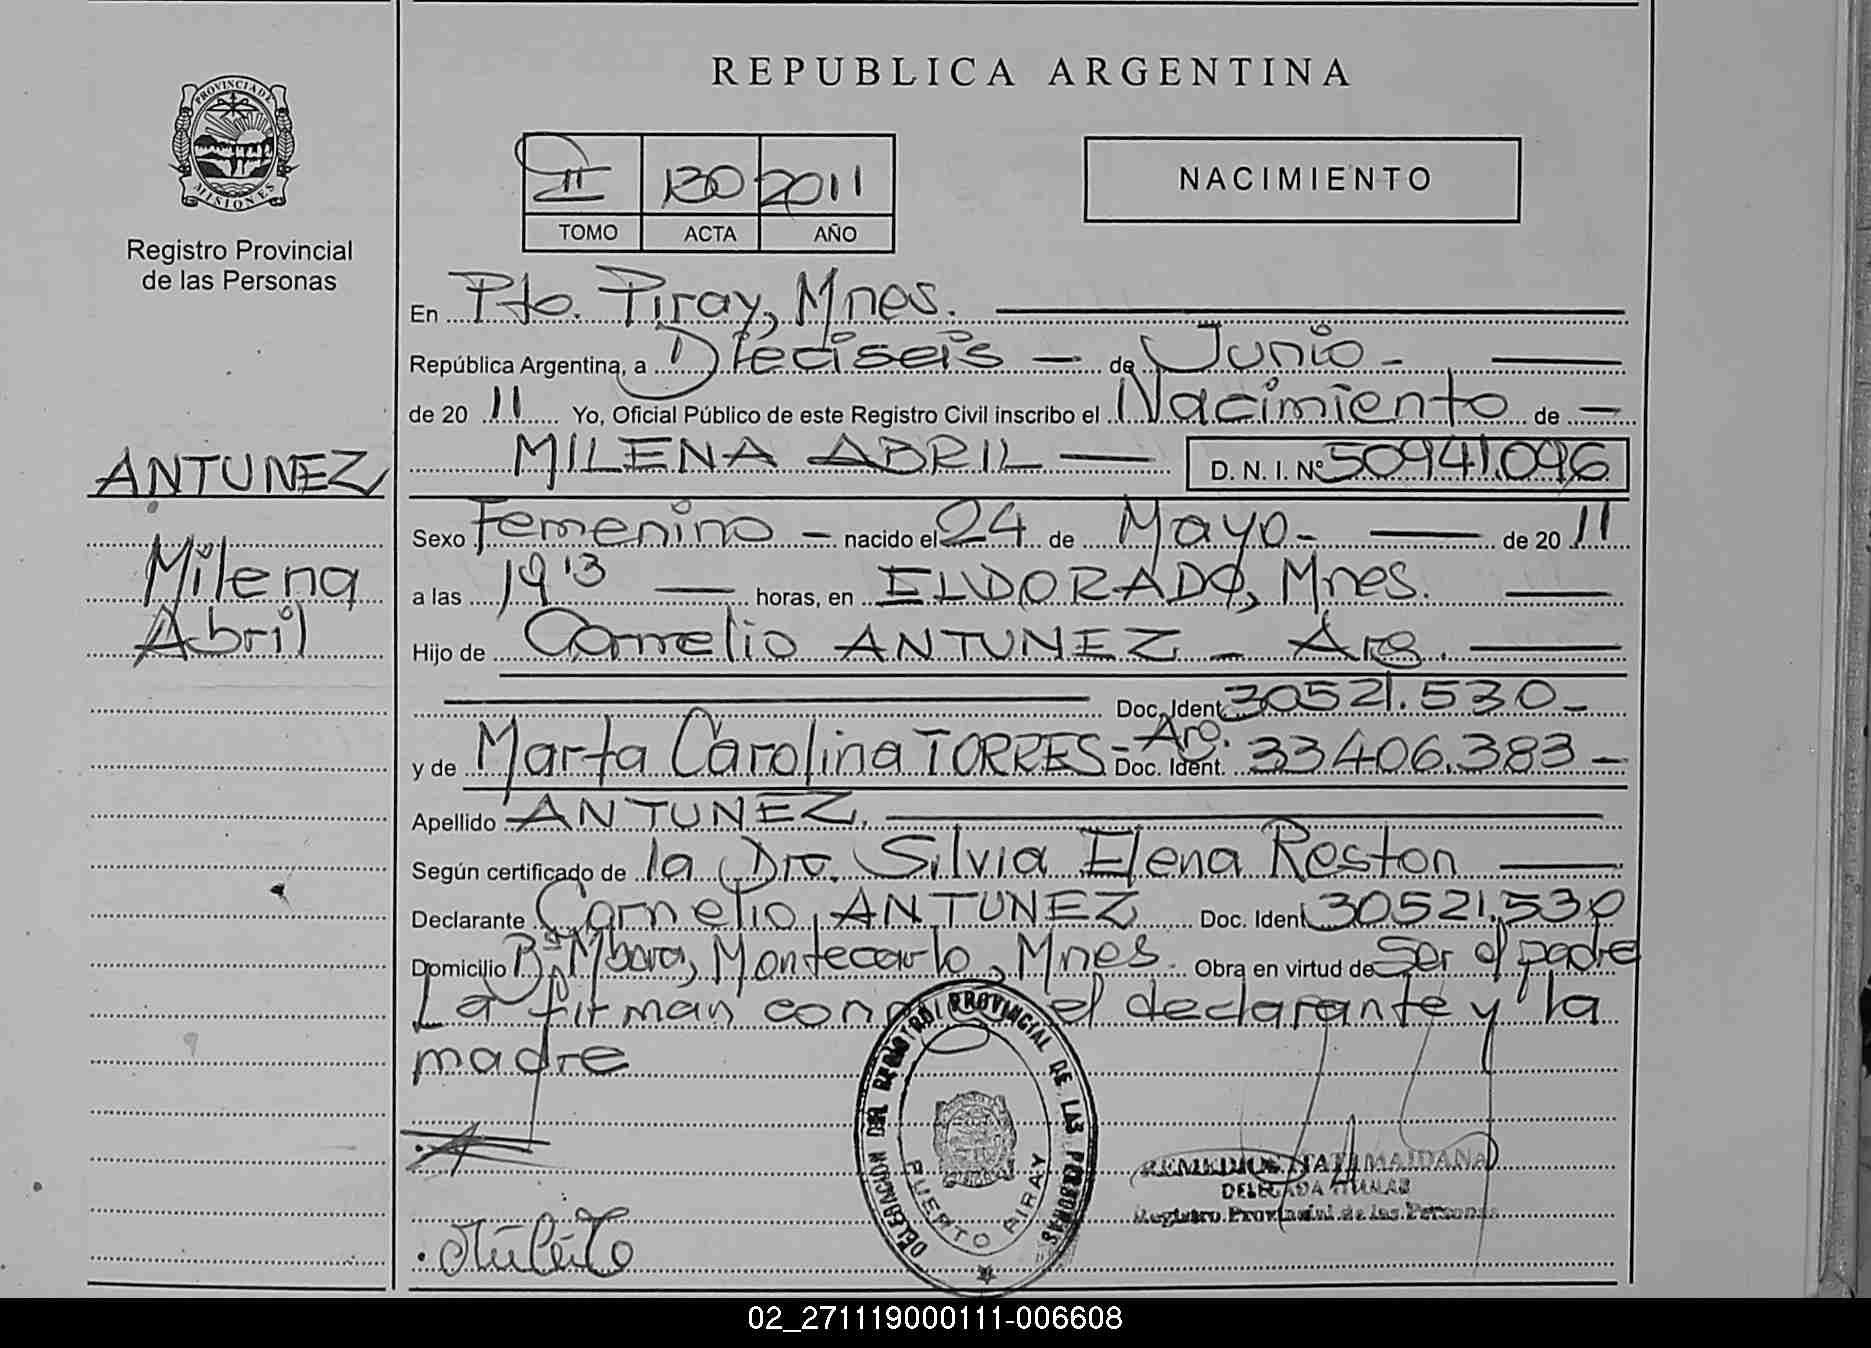 REPUBLICA ARGENTINA
PROVINCIA DE MISIONES
Registro Provincial
de las Personas
II 130 2011
TOMO ACTA AÑO
NACIMIENTO
En Pto. Piray, Mnes.
República Argentina, a Dieciseis - de Junio -
de 20 11 Yo, Oficial Público de este Registro Civil inscribo el Nacimiento de -
MILENA ABRIL D. N. I. Nº 50941.096
ANTUNEZ
Milena
Abril
Sexo Femenino - nacido el 24 de Mayo - de 20 11
a las 19 13 horas, en ELDORADO, Mnes.
Hijo de Cornelio ANTUNEZ - Arg.
Doc. Ident. 30521.530 -
y de Marta Carolina TORRES - Arg. Doc. Ident. 33406.383 -
Apellido ANTUNEZ.
Según certificado de la Dra. Silvia Elena Reston
Declarante Cornelio ANTUNEZ Doc. Ident 30521.530
Domicilio Bº Mbora, Montecarlo, Mnes. Obra en virtud de Ser el padre
La firman el declarante y la
madre
DELEGACION DEL REGISTRO PROVINCIAL DE LAS PERSONAS
PUERTO PIRAY
REMEDIOS MAIDANA
DELEGADA TITULAR
Registro Provincial de las Personas
02_271119000111-006608